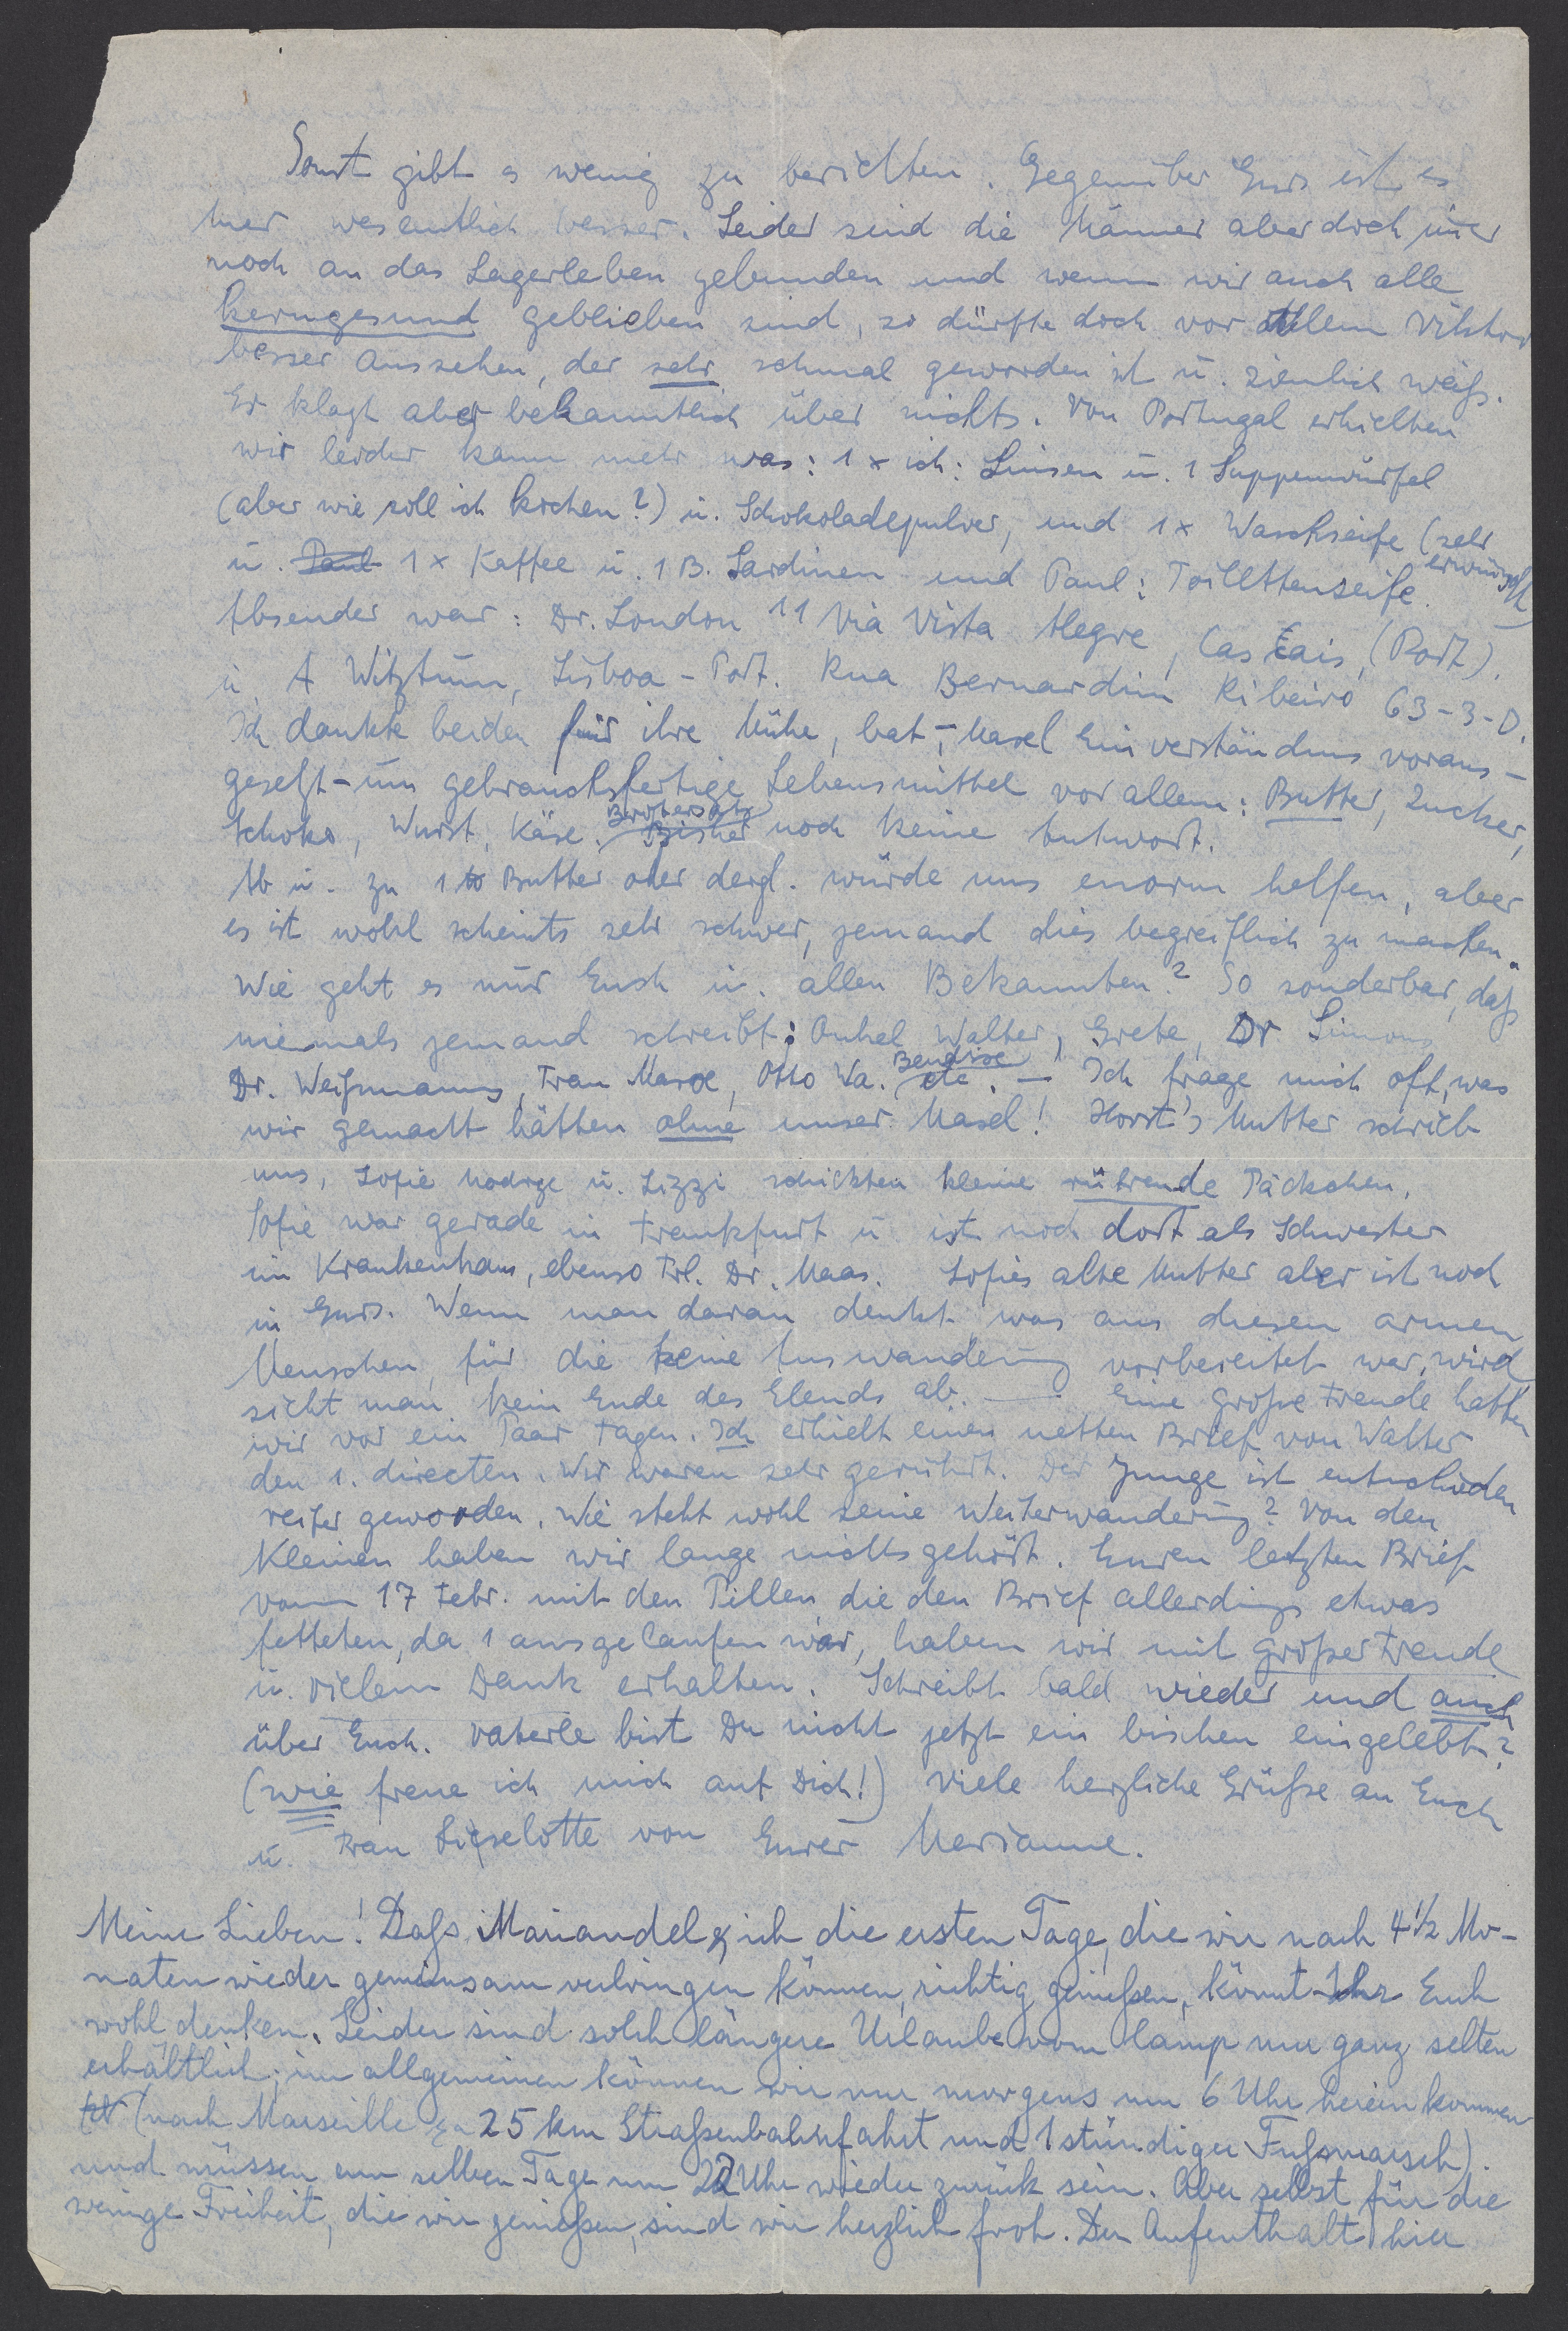 Sonst gibt es wenig zu berichten. Gegenüber Gurs ist es
hier wesentlich besser. Leider sind die Männer aber doch imer
noch an das Lagerleben gebunden und wenn wir auch alle
kerngesund geblieben sind, so dürfte doch vor allem Viktor
besser aussehen, der sehr schmal geworden ist u. ziemlich weiß.
Er klagt aber bekanntlich über nichts. Von Portugal erhielten
wir leider kaum mehr was: 1 x ich: Linsen u. 1 Suppenwürfel
(aber wie soll ich kochen?) u. Schokoladepulver, und 1x Waschseife (sehr erwünscht)
u. Paul 1 x Kaffee u. 1 B. Sardinen und Paul: Toilettenseife.
Absender war: Dr. London 11 Via Vista Alegre, Cascais, (Port).
u. A Witztum, Lisboa - Port. Rua Bernardim Ribeiro 63-3-D.
Ich dankte beiden für ihre Mühe, bat, - Masel Einverständnis voraus-
gesetzt - um gebrauchsfertige Lebensmittel vor allem: Butter, Zucker,
Schoko, Wurst, Käse. Bisher noch keine Antwort.
Ab u. zu 1 to Butter oder dergl. würde uns enorm helfen, aber
es ist wohl scheints sehr schwer, jemand dies begreiflich zu machen.
Wie geht es nur Euch u. allen Bekannten? So sonderbar, daß
niemals jemand schreibt: Onkel Walter, Grete, Dr Simons
Dr. Weißmanns, Frau Marx, Otto Wa. Bendixe etc. - Ich frage mich oft, was
wir gemacht hätten ohne unser Masel! Horst's Mutter schrieb
uns, Sofie u. Lizzi schickten kleine rührende Päckchen.
Sofie war gerade in Frankfurt u. ist noch dort als Schwester
im Krankenhaus, ebenso Frl. Dr. Maas. Sofies alte Mutter aber ist noch
in Gurs. Wenn man daran denkt was aus diesen armen
Menschen, für die keine Auswanderung vorbereitet war, wird
sieht man kein Ende des Elends ab. - Eine große Freude hatten
wir vor ein Paar Tagen. Ich erhielt einen netten Brief von Walter
den 1. directen. Wir waren sehr gerührt. Der Junge ist entschieden
reifer geworden. Wie steht wohl seine Weiterwanderung? Von den
Kleinen haben wir lange nichts gehört. Euren letzten Brief
vom 17 Febr. mit den Pillen, die den Brief allerdings etwas
fetteten, da 1 ausgelaufen war, haben wir mit großer Freude
u. vielem Dank erhalten. Schreibt bald wieder und auch
über Euch. Vaterle bist Du nicht jetzt ein bischen eingelebt?
(wie freue ich mich auf Dich!) Viele herzliche Grüße an Euch
u. Frau Lieselotte von Eurer Marianne.
Meine Lieben! Dass Mariandel & ich die ersten Tage, die wir nach 4½ Mo-
naten wieder gemeinsam verbringen können, richtig genießen, könnt Ihr Euch
wohl denken. Leider sind solch längere Urlaube vom Camp nur ganz selten
erhältlich; im allgemeinen können wir nur morgens um 6 Uhr herein kommen
(nach Marseille ca 25 km Straßenbahnfahrt und 1 stündiger Fußmarsch).
und müssen am selben Tage um 22 Uhr wieder zurück sein. Aber selbst für die
wenige Freiheit, die wir genießen, sind wir herzlich froh. Der Aufenthalt hier